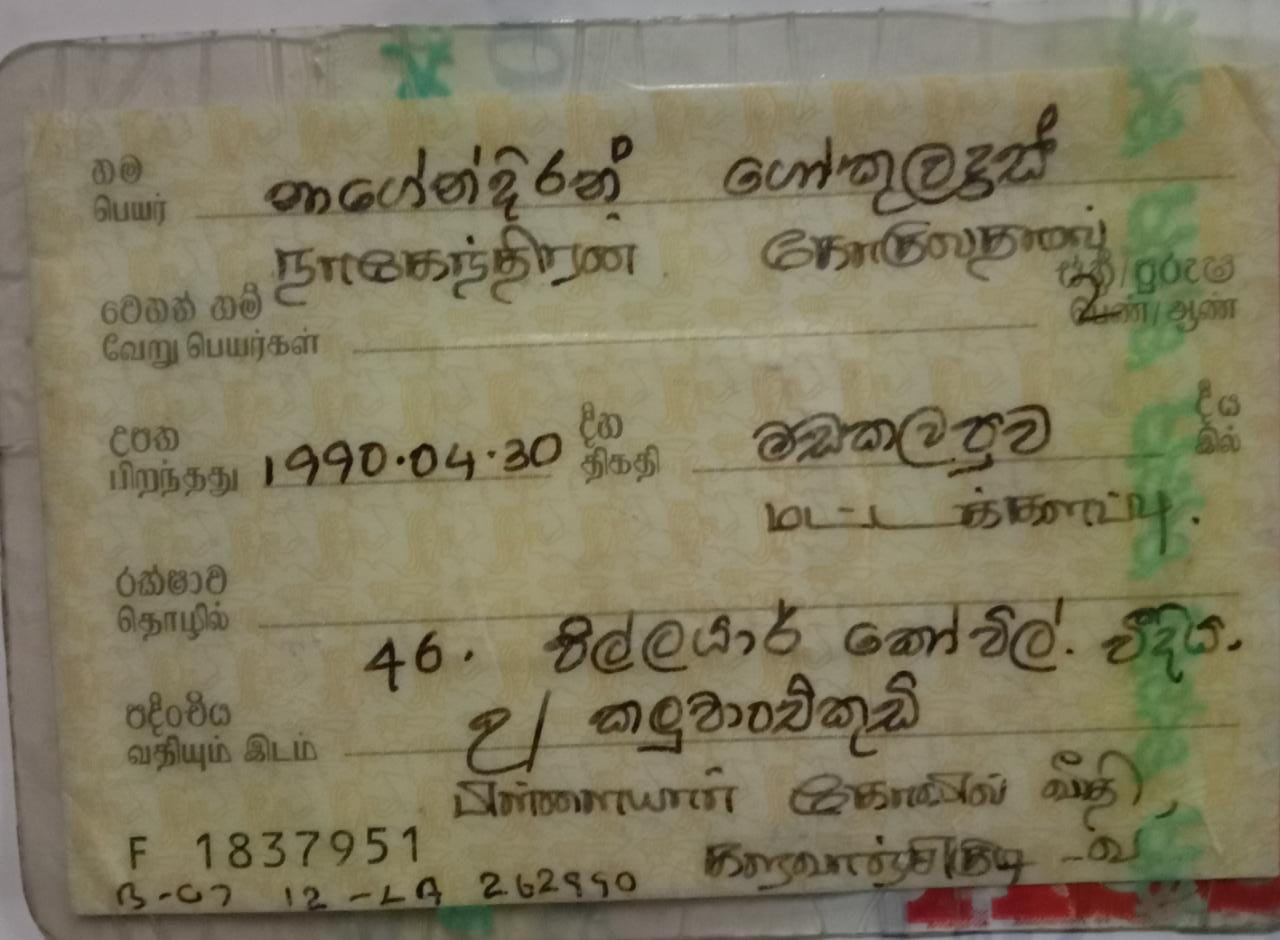 නම
பெயர் නාගේන්දිරන් ගෝකුලදාස්
நாகேந்திரன் கோகுலதாஸ்
වෙනත් නම්
வேறு பெயர்கள்
ස්ත්‍රී/පුරුෂ
பெண்/ஆண்
උපන් දින මඩකලපුව දීය
பிறந்தது 1990.04.30 திகதி இல்
மட்டக்களப்பு.
රක්ෂාව
தொழில்
46. පිල්ලයාර් කෝවිල්. වීදිය.
පදිංචිය
வதியும் இடம் උ/ කලුවාංචිකුඩි
பிள்ளையார் கோவில் வீதி,
களுவாஞ்சிகுடி -வ
F 1837951
262990